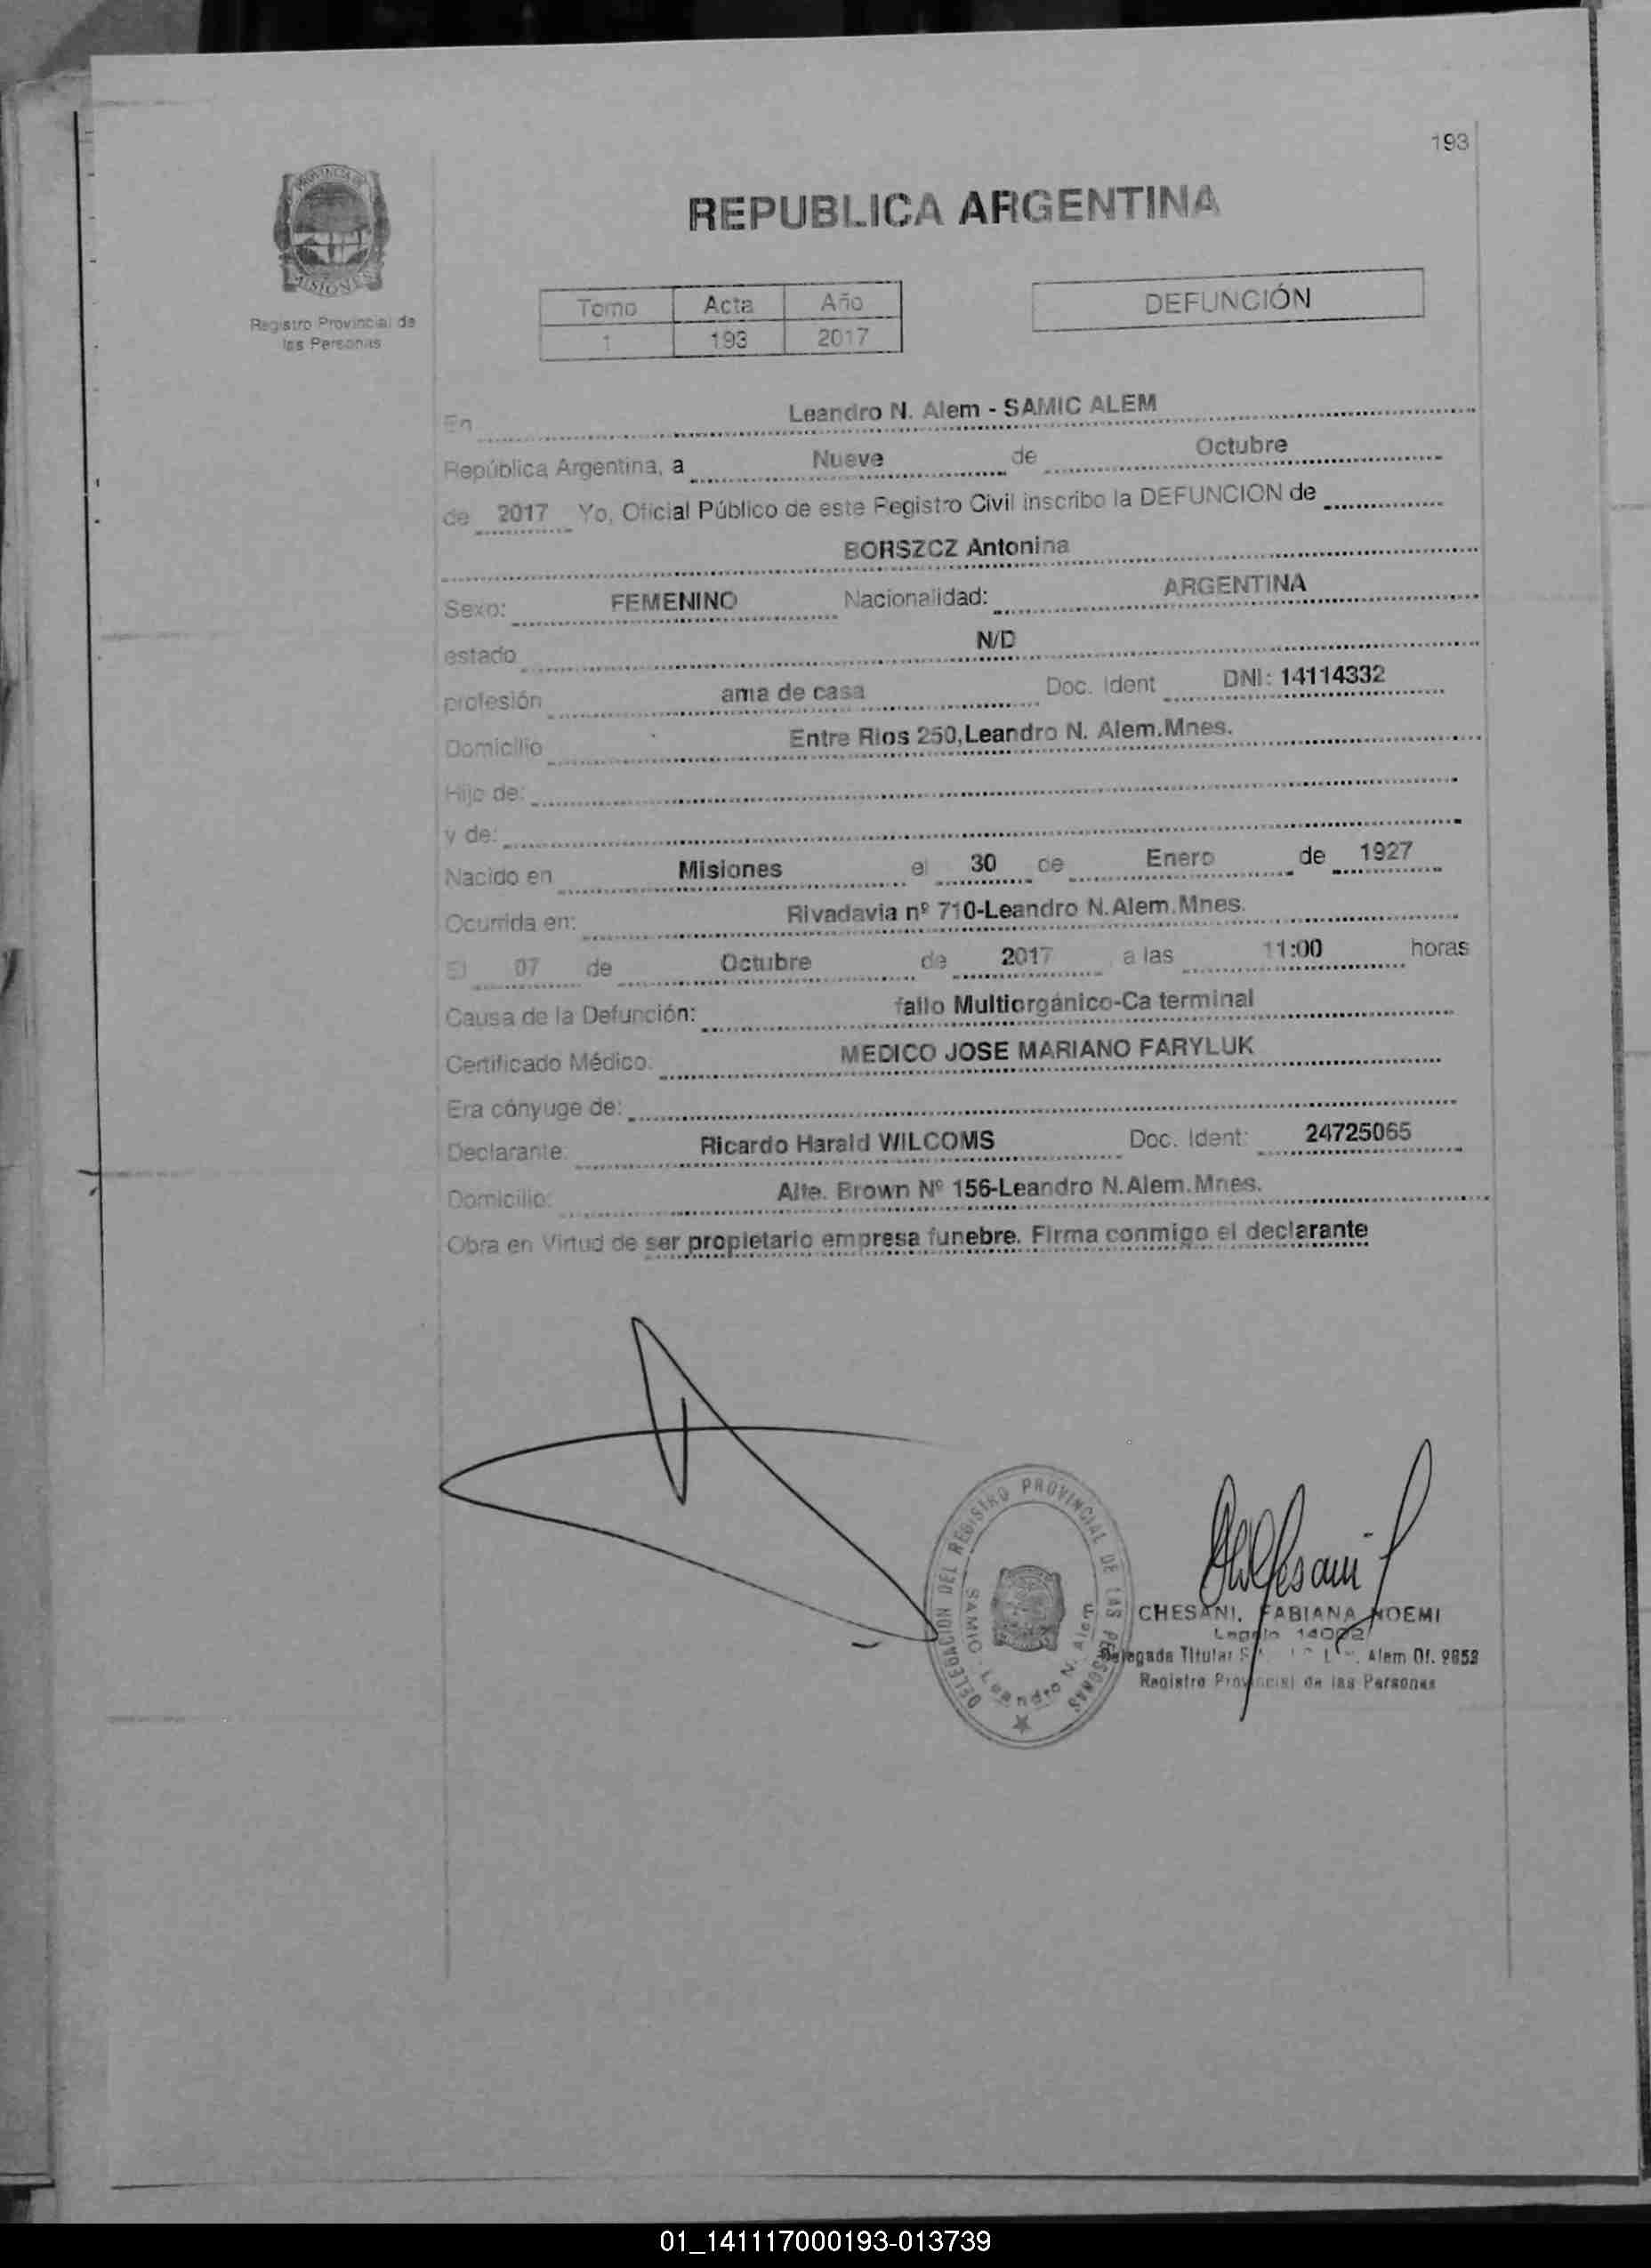 193
PROVINCIA DE
MISIONES
Registro Provincial de
las Personas
REPUBLICA ARGENTINA
Tomo Acta Año
1 193 2017
DEFUNCIÓN
En Leandro N. Alem - SAMIC ALEM
República Argentina, a Nueve de Octubre
de 2017 Yo, Oficial Público de este Registro Civil inscribo la DEFUNCION de
BORSZCZ Antonina
Sexo: FEMENINO Nacionalidad: ARGENTINA
estado N/D
profesión ama de casa Doc. Ident DNI: 14114332
Domicilio Entre Rios 250,Leandro N. Alem.Mnes.
Hijo de:
y de:
Nacido en Misiones el 30 de Enero de 1927
Ocurrida en: Rivadavia nº 710-Leandro N.Alem.Mnes.
El 07 de Octubre de 2017 a las 11:00 horas
Causa de la Defunción: fallo Multiorgánico-Ca terminal
Certificado Médico: MEDICO JOSE MARIANO FARYLUK
Era cónyuge de:
Declarante: Ricardo Harald WILCOMS Doc. Ident: 24725065
Domicilio: Alte. Brown Nº 156-Leandro N.Alem.Mnes.
Obra en Virtud de ser propietario empresa funebre. Firma conmigo el declarante
DELEGACION DEL REGISTRO PROVINCIAL DE LAS PERSONAS
SAMIC - Leandro N. Alem
CHESANI, FABIANA NOEMI
Legajo
Delegada Titular Alem Of. 9853
Registro Provincial de las Personas
01_141117000193-013739